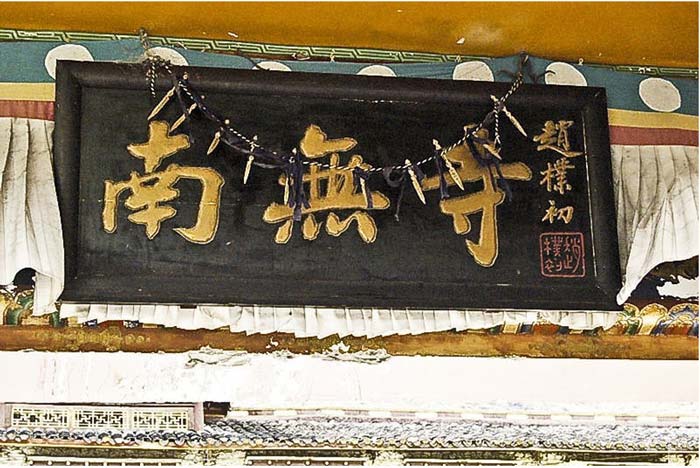 南無寺
趙樸初